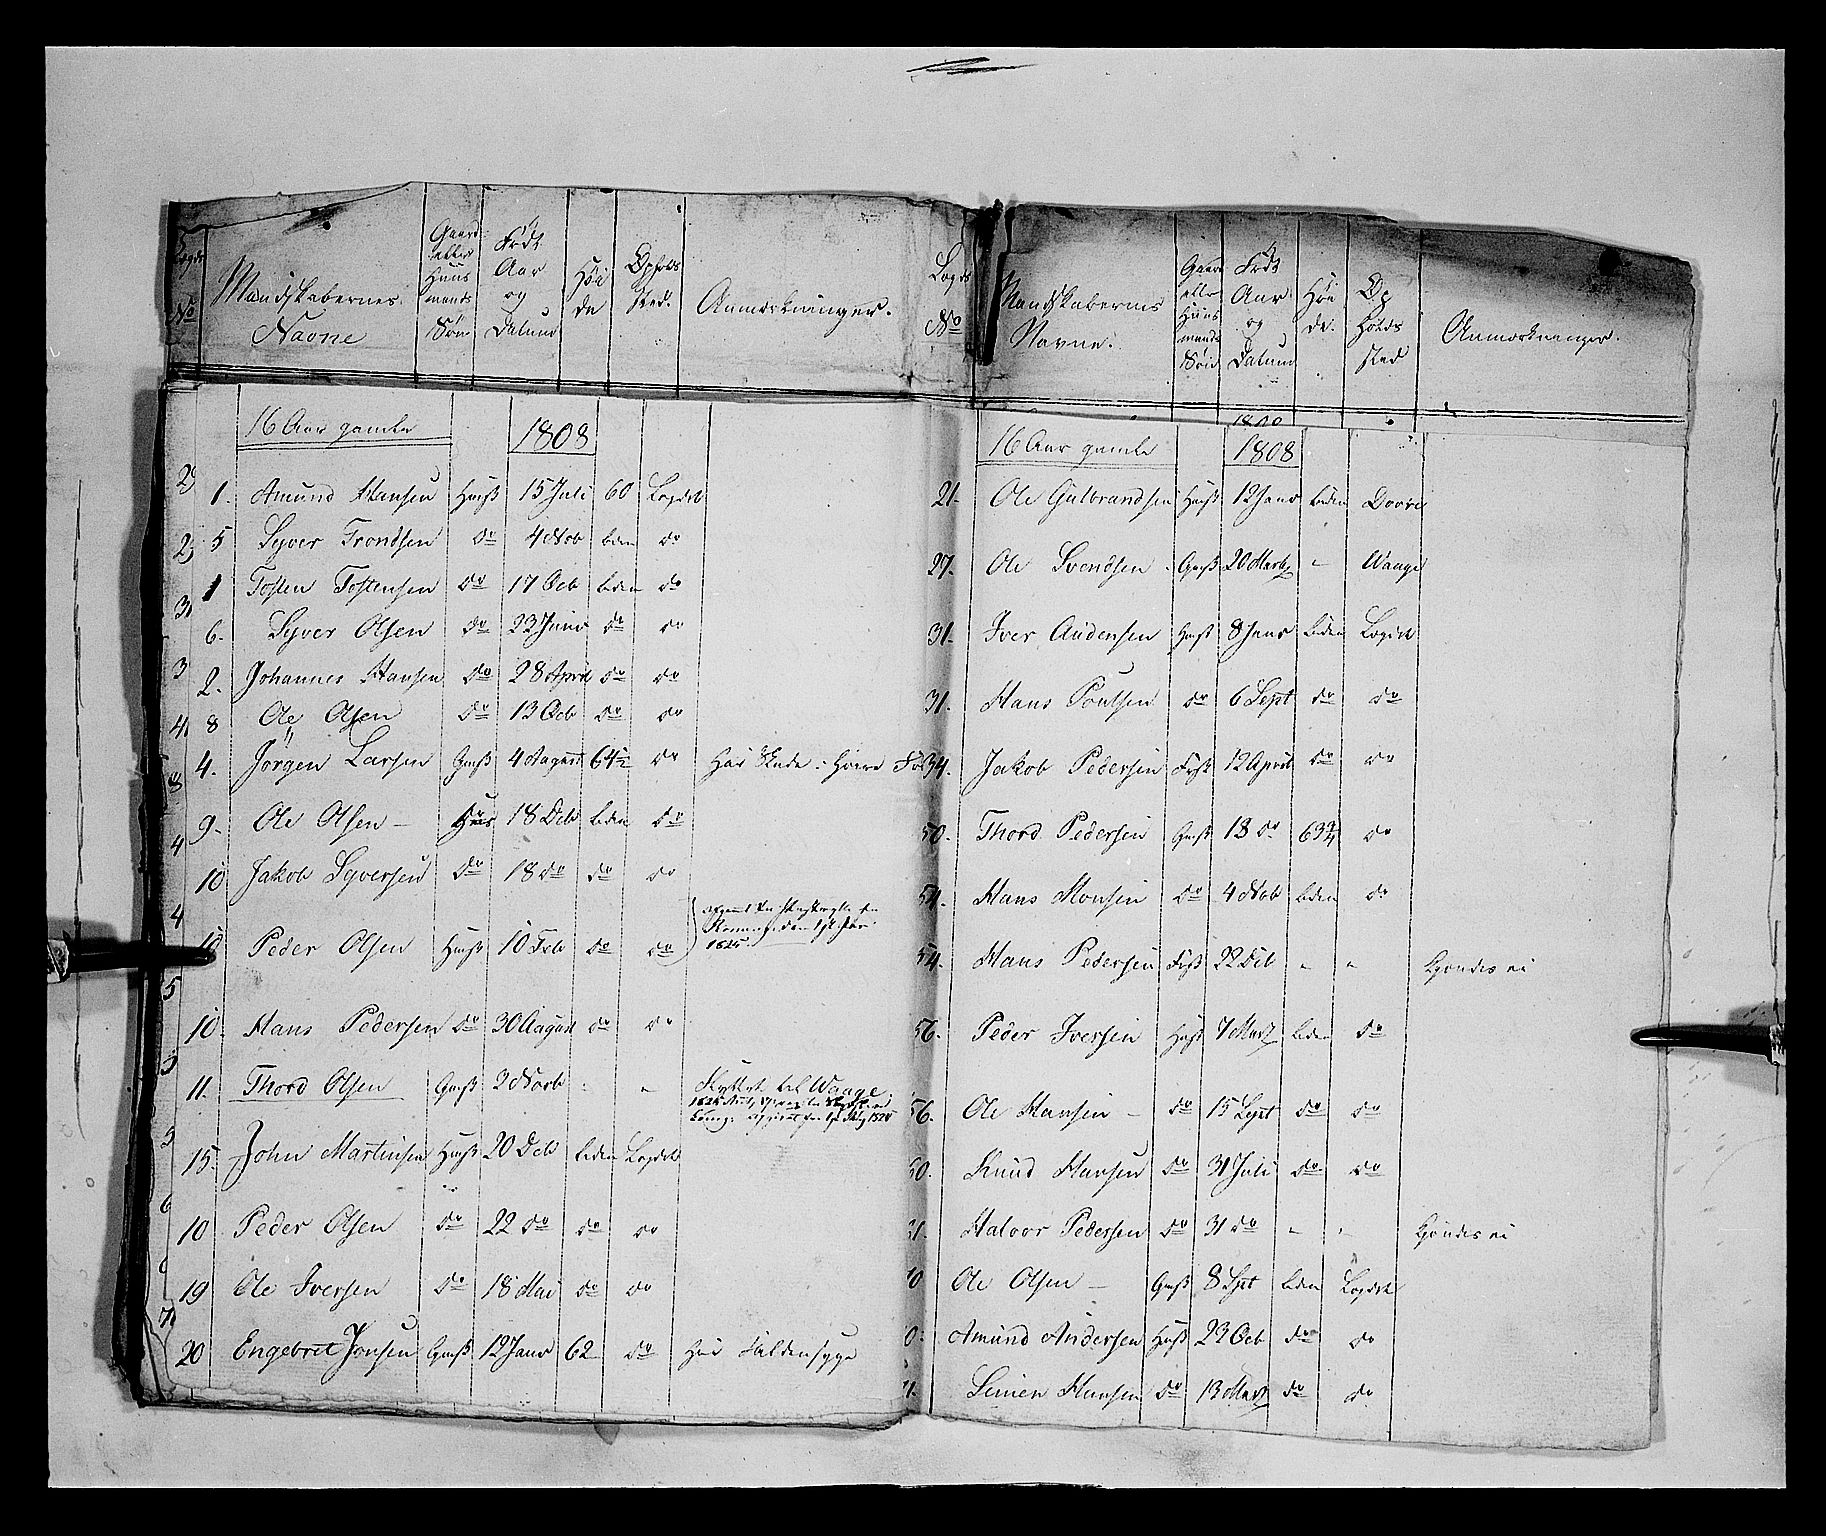 Lægds No
Mandskabernes Navne
Gaard eller Huus mands Søn
Født Aar og Datum
Høi de
Opholds sted.
Anmærkninger.
16 Aar gamle 1808
1. Amund Hansen Huuss 15 Juli 60 Lægdet
5 Syver Trondsen do 4 Nob liden do
1 Tosten Tostensen do 17 Ocb liden do
6. Syver Olsen do 23 Juni do do
2. Johannes Hansen do 28 April do do
8 Ole Olsen do 13 Ocb do do
4. Jörgen Larsen Gmss 4 August 64½ do Har Skade i Høire
9. Ole Olsen – 18 Deb liden do
10 Jakob Syversen do 18 do do do
10 Peder Olsen Huuss 10 Feb do do
1825
10. Hans Pedersen do 30 August do do
11. Thord Olsen Gmss 3 Novb - - Flyttet til Waage
15. John Martinsen Huuss 20 Deb liden Lægdet
10 Peder Olsen do 22 do do do
19 Ole Iversen do 18 Mai do do
20 Engebret Jonsen Gmss 12 Janr 62 do Har Faldensyge
Lægds No
Mandskabernes Navne.
Gaard eller Huus mands Søn
Født Aar og Datum
Høi de.
Op holds sted
Anmærkninger.
1808
16 Aar gamle 1808
21. Ole Gulbrandsen Huss 12 Janr liden Dovre
27. Ole Svendsen Gmss 20 Marts - Waage
31. Iver Audensen Huss 8 Janr liden Lægdet
31. Hans Poulsen do 6 Sept do do
34. Jakob Pedersen 12 April do do
50. Thord Pedersen Gmss 13 do 63¾ do
54. Hans Monsen do 4 Nob liden do
54. Hans Pedersen 22 Deb - - Kjendes ei
56. Peder Iversen Huss 7 Marts liden do
56. Ole Hansen – do 15 Sept do do
50. Knud Hansen do 31 Juli do do
61. Halvor Pedersen do 31 do - - Kjendes ei
70 Ole Olsen – Gmss 8 Sept liden Lægdet
0. Amund Andersen Huss 23 Ocb do do
1. Simen Hansen do 13 Marts do do